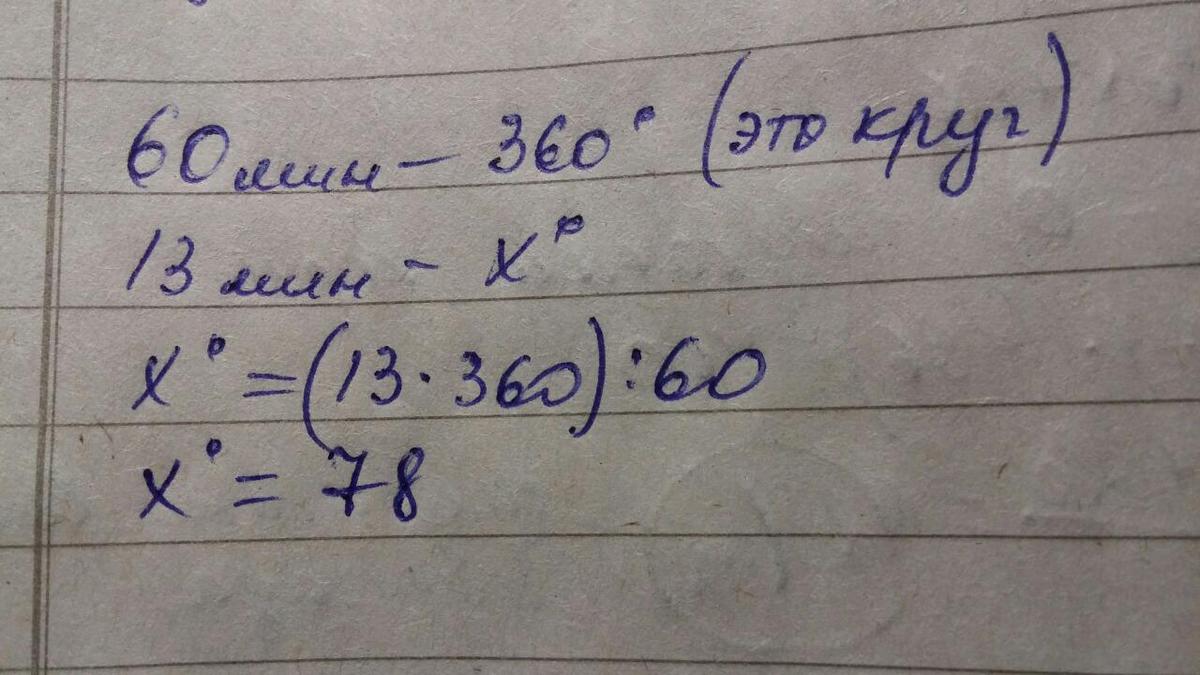 60 мин – 360° (это круг)
13 мин – x°
x° = (13 · 360) : 60
x° = 78